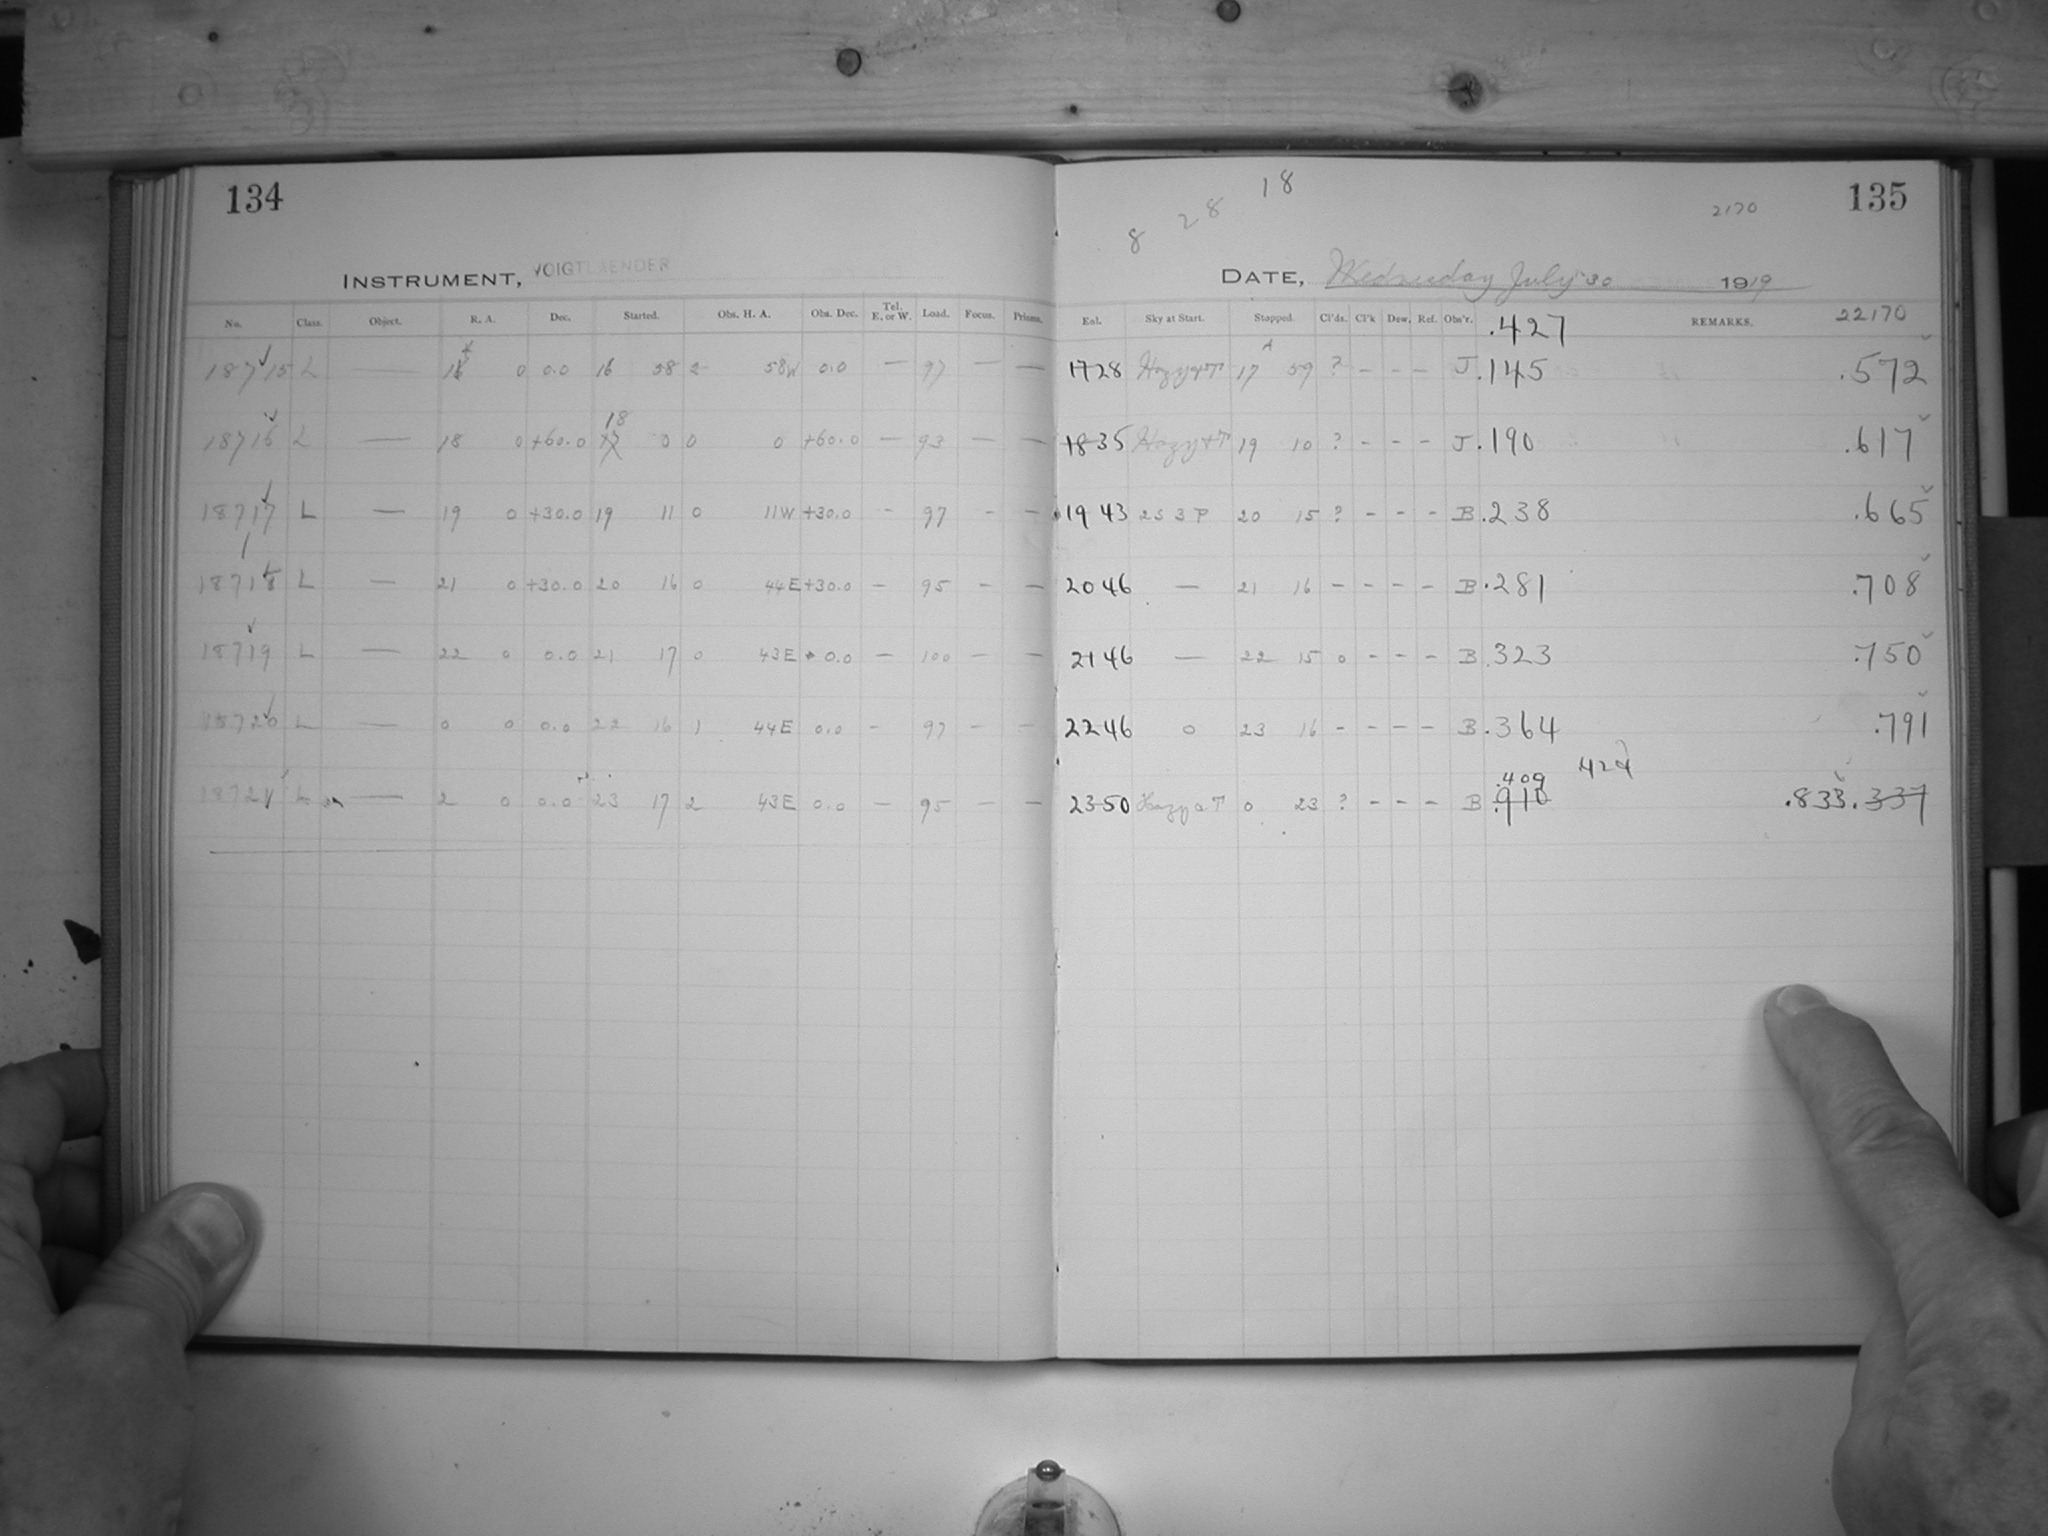 134
INSTRUMENT, VOIGTLAENDER
No. Class. Object. R. A. Dec. Started. Obs. H. A. Obs. Dec. Tel. E. or W. Load. Focus. Prisms.
18715 L — 0 0.0 16 58 2 58W 0.0 — 97 — —
18716 L — 18 0 +60.0 18 0 0 0 +60.0 — 93 — —
18717 L — 19 0 +30.0 19 11 0 11W +30.0 - 97 - -
18718 L — 21 0 +30.0 20 16 0 44E +30.0 - 95 - -
18719 L — 22 0 0.0 21 17 0 43E 0.0 — 100 - -
18720 L — 0 0 0.0 22 16 1 44E 0.0 - 97 - -
18721 L — 2 0 0.0 23 17 2 43E 0.0 - 95 - -
8 28 18
2170
135
DATE, Wednesday July 30 1919
Eol. Sky at Start. Stopped. Cl'ds. Cl'k Dew. Ref. Obs'r. .427 REMARKS. 22170
1728 Hazy+T 17 59 ? - - - J .145 .572
1835 Hazy+T 19 10 ? - - - J .190 .617
1943 25 3 P 20 15 ? - - - B .238 .665
2046 — 21 16 - - - - B .281 .708
2146 — 22 15 0 - - - B .323 .750
2246 0 23 16 - - - - B .364 .791
.409 .424
2350 Hazy a T 0 23 ? - - - B .910 .833 .337